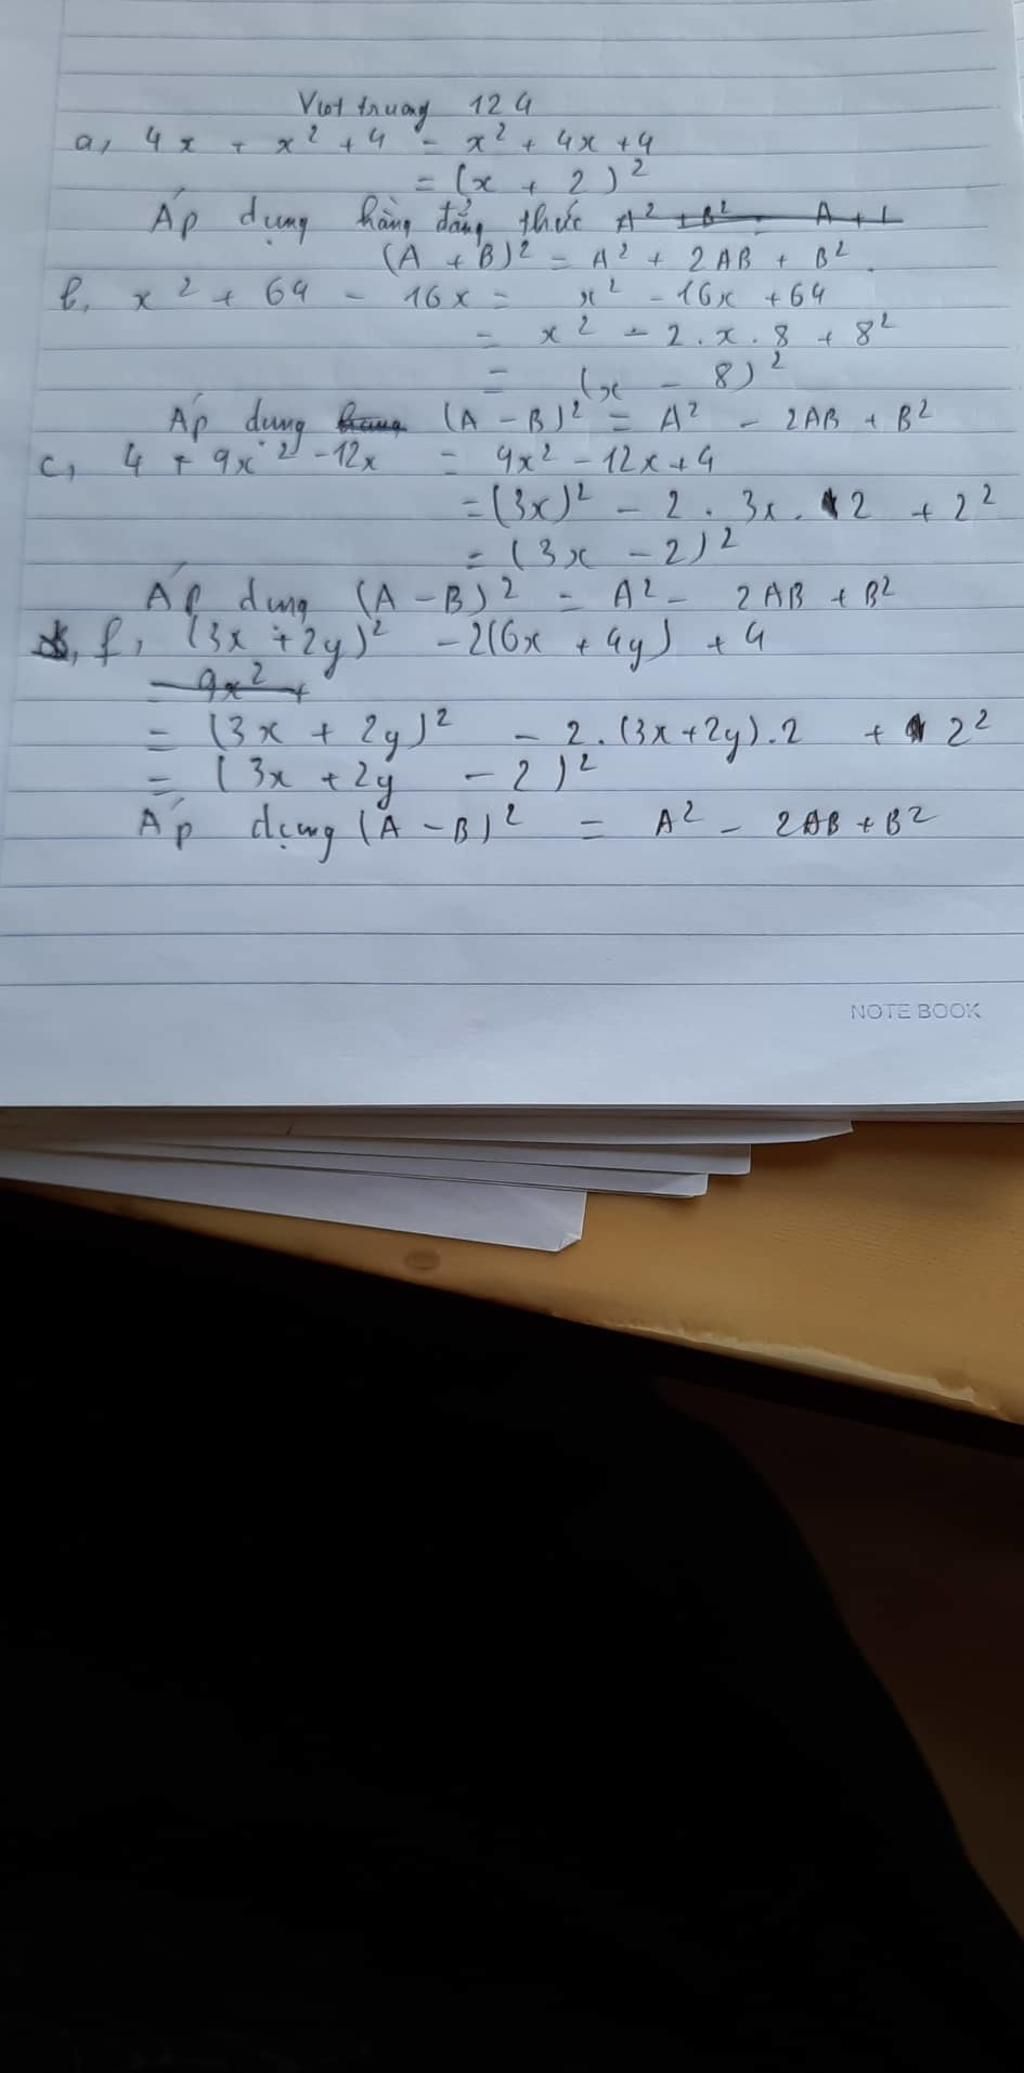 Việt trung 124
a, 4x + x² + 4 = x² + 4x + 4
= (x + 2)²
Áp dụng hằng đẳng thức A² + B² = A + 1
(A + B)² = A² + 2AB + B².
b, x² + 64 - 16x = x² - 16x + 64
= x² - 2.x.8 + 8²
= (x - 8)²
Áp dụng (A - B)² = A² - 2AB + B²
c, 4 + 9x² - 12x = 9x² - 12x + 4
= (3x)² - 2.3x.2 + 2²
= (3x - 2)²
Áp dụng (A - B)² = A² - 2AB + B²
f, (3x + 2y)² - 2(6x + 4y) + 4
= 9x² +
= (3x + 2y)² - 2.(3x+2y).2 + 2²
= (3x + 2y - 2)²
Áp dụng (A - B)² = A² - 2AB + B²
NOTE BOOK